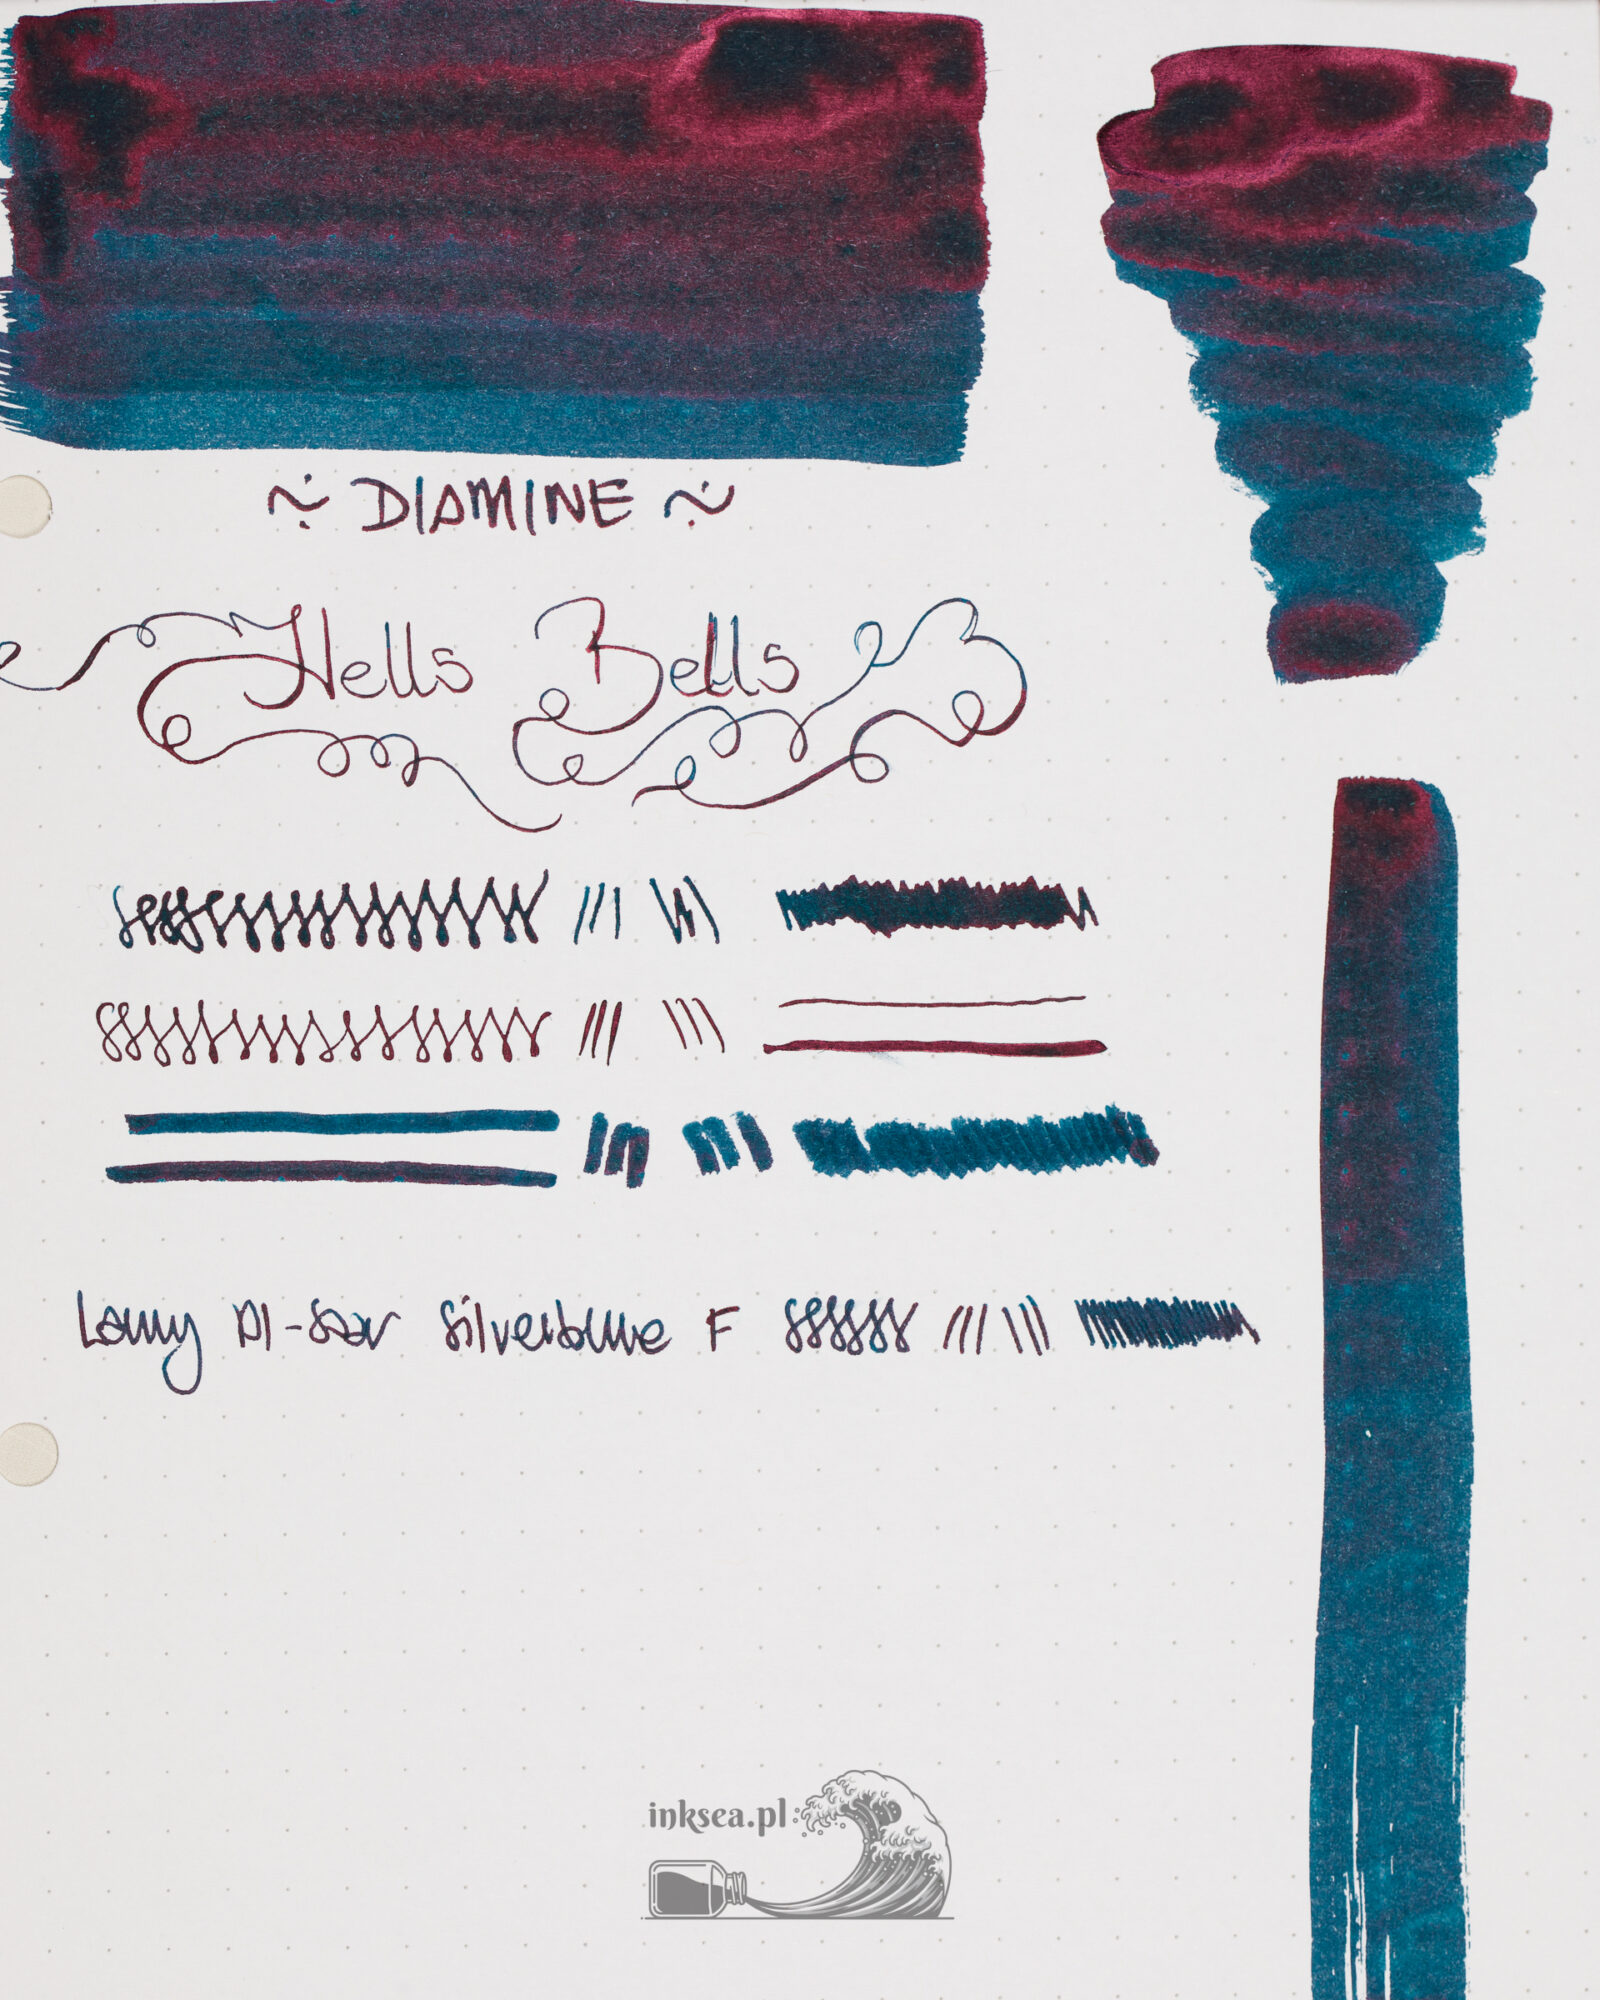 ~ DIAMINE ~
Hells Bells
Lamy Al-Star Silverblue F
inksea.pl